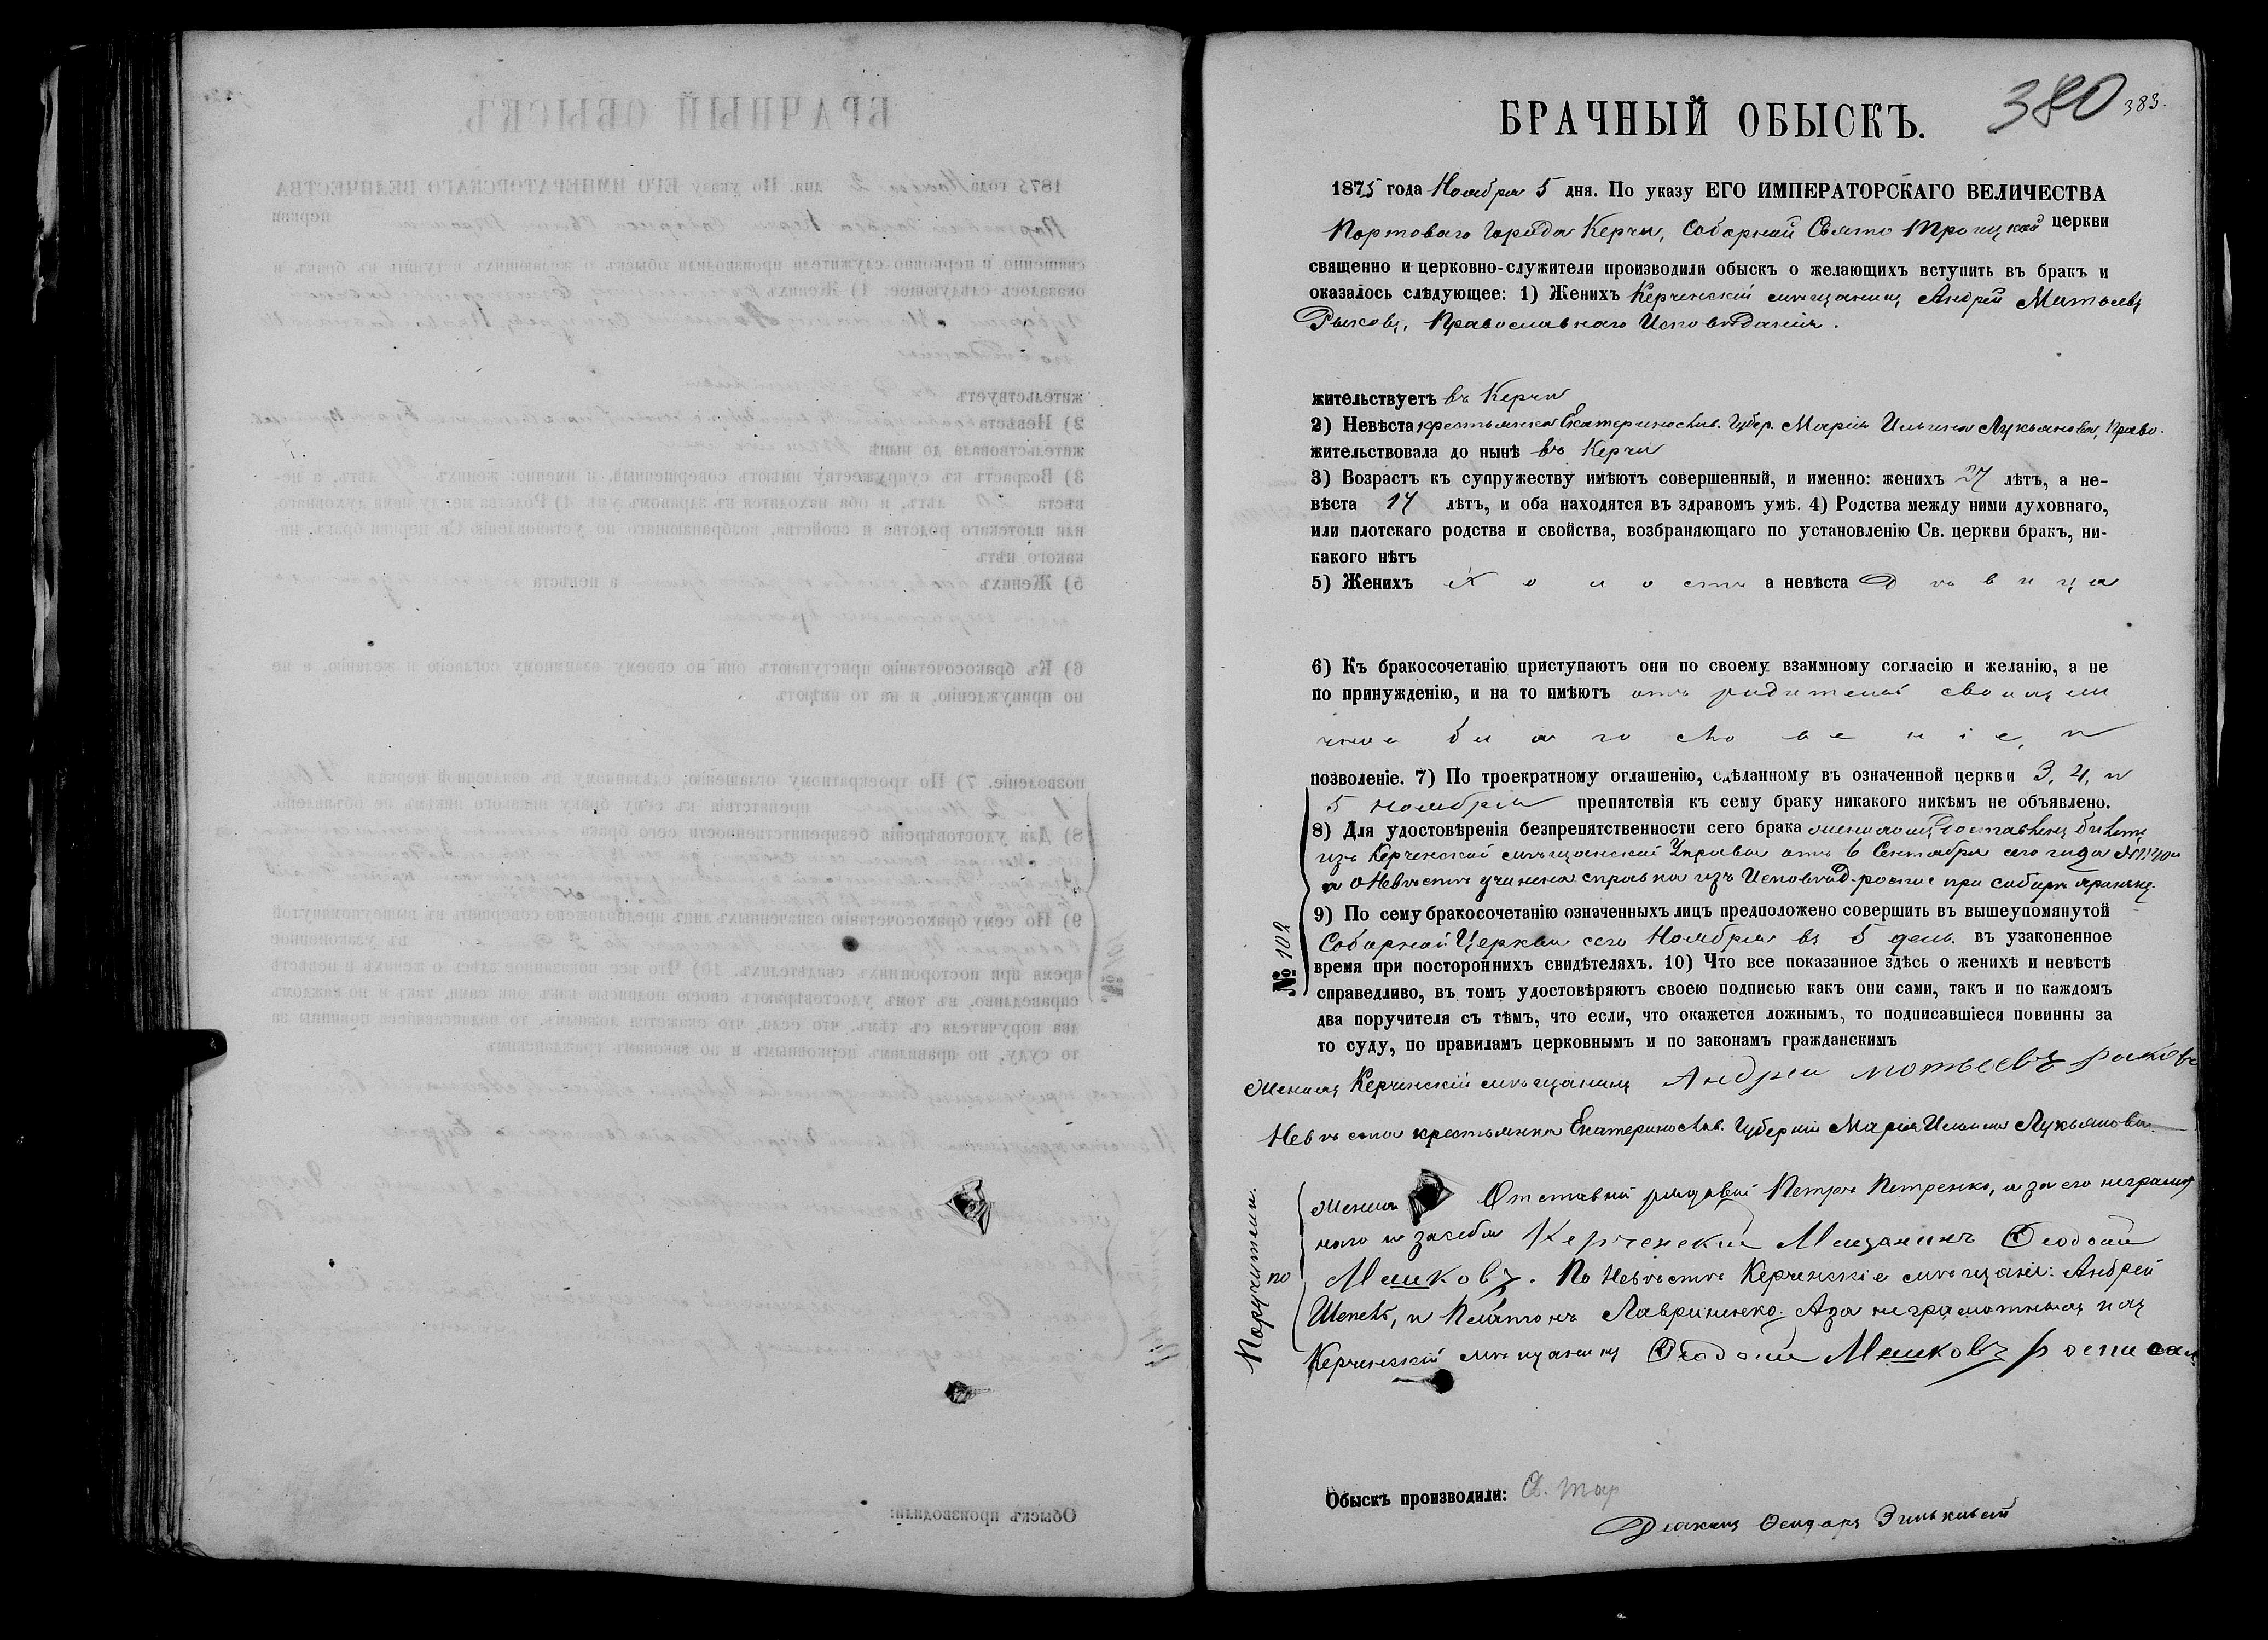 БРАЧНЫЙ ОБЫСКЪ.
380 383.
1875 года Ноября 5 дня. По указу ЕГО ИМПЕРАТОРСКАГО ВЕЛИЧЕСТВА
Портоваго города Керчи, Соборной Свято Троицкой церкви
священно и церковно-служители производили обыскъ о желающихъ вступить въ бракъ и
оказалось слѣдующее: 1) Женихъ Керченскій мѣщанинъ Андрей Матѳеевъ
Рыковъ, Православнаго Исповѣданія.
жительствуетъ въ Керчи
2) Невѣста крестьянка Екатеринослав. Губер. Марія Ильина Лукьянова, Право.
жительствовала до нынѣ въ Керчи
3) Возрастъ къ супружеству имѣютъ совершенный, и именно: женихъ 27 лѣтъ, а не-
вѣста 17 лѣтъ, и оба находятся въ здравомъ умѣ. 4) Родства между ними духовнаго,
или плотскаго родства и свойства, возбраняющаго по установленію Св. церкви бракъ, ни-
какого нѣтъ
5) Женихъ Холостъ а невѣста Дѣвица
6) Къ бракосочетанію приступаютъ они по своему взаимному согласію и желанію, а не
по принужденію, и на то имѣютъ отъ родителей своихъ
благословеніе, и
позволеніе. 7) По троекратному оглашенію, сдѣланному въ означенной церкви 3, 4, и
5 ноября препятствія къ сему браку никакого никѣмъ не объявлено.
8) Для удостовѣренія безпрепятственности сего брака женихомъ доставленъ билетъ
изъ Керченской мѣщанской Управы отъ 6 Сентября сего года
а о Невѣстѣ учинена справка изъ Исповѣд. росписе при соборѣ
№ 102
9) По сему бракосочетанію означенныхъ лицъ предположено совершить въ вышеупомянутой
Соборной Церкви сего Ноября въ 5 день. въ узаконенное
время при постороннихъ свидѣтеляхъ. 10) Что все показанное здѣсь о женихѣ и невѣстѣ
справедливо, въ томъ удостовѣряютъ своею подписью какъ они сами, такъ и по каждомъ
два поручителя съ тѣмъ, что если, что окажется ложнымъ, то подписавшіеся повинны за
то суду, по правиламъ церковнымъ и по законамъ гражданскимъ
Женихъ Керченскій мѣщанинъ Андреи мотьевъ рыковъ
Невѣста крестьянка Екатеринослав. Губерніи Марія Ильина Лукьянова.
Поручители. по
Отставной рядовой Петръ Петренко, а за его неграмот
наго и засебя Керченски Мещанинъ Ѳеодоси
Мешковъ. По Невѣстѣ Керченскіе мѣщане: Андрей
и Платонъ Лавриненко. А за неграмотныхъ ихъ
Керченскій мѣщанинъ Ѳеодоси Мешковъ росписал
Обыскъ производили:
Діаконъ